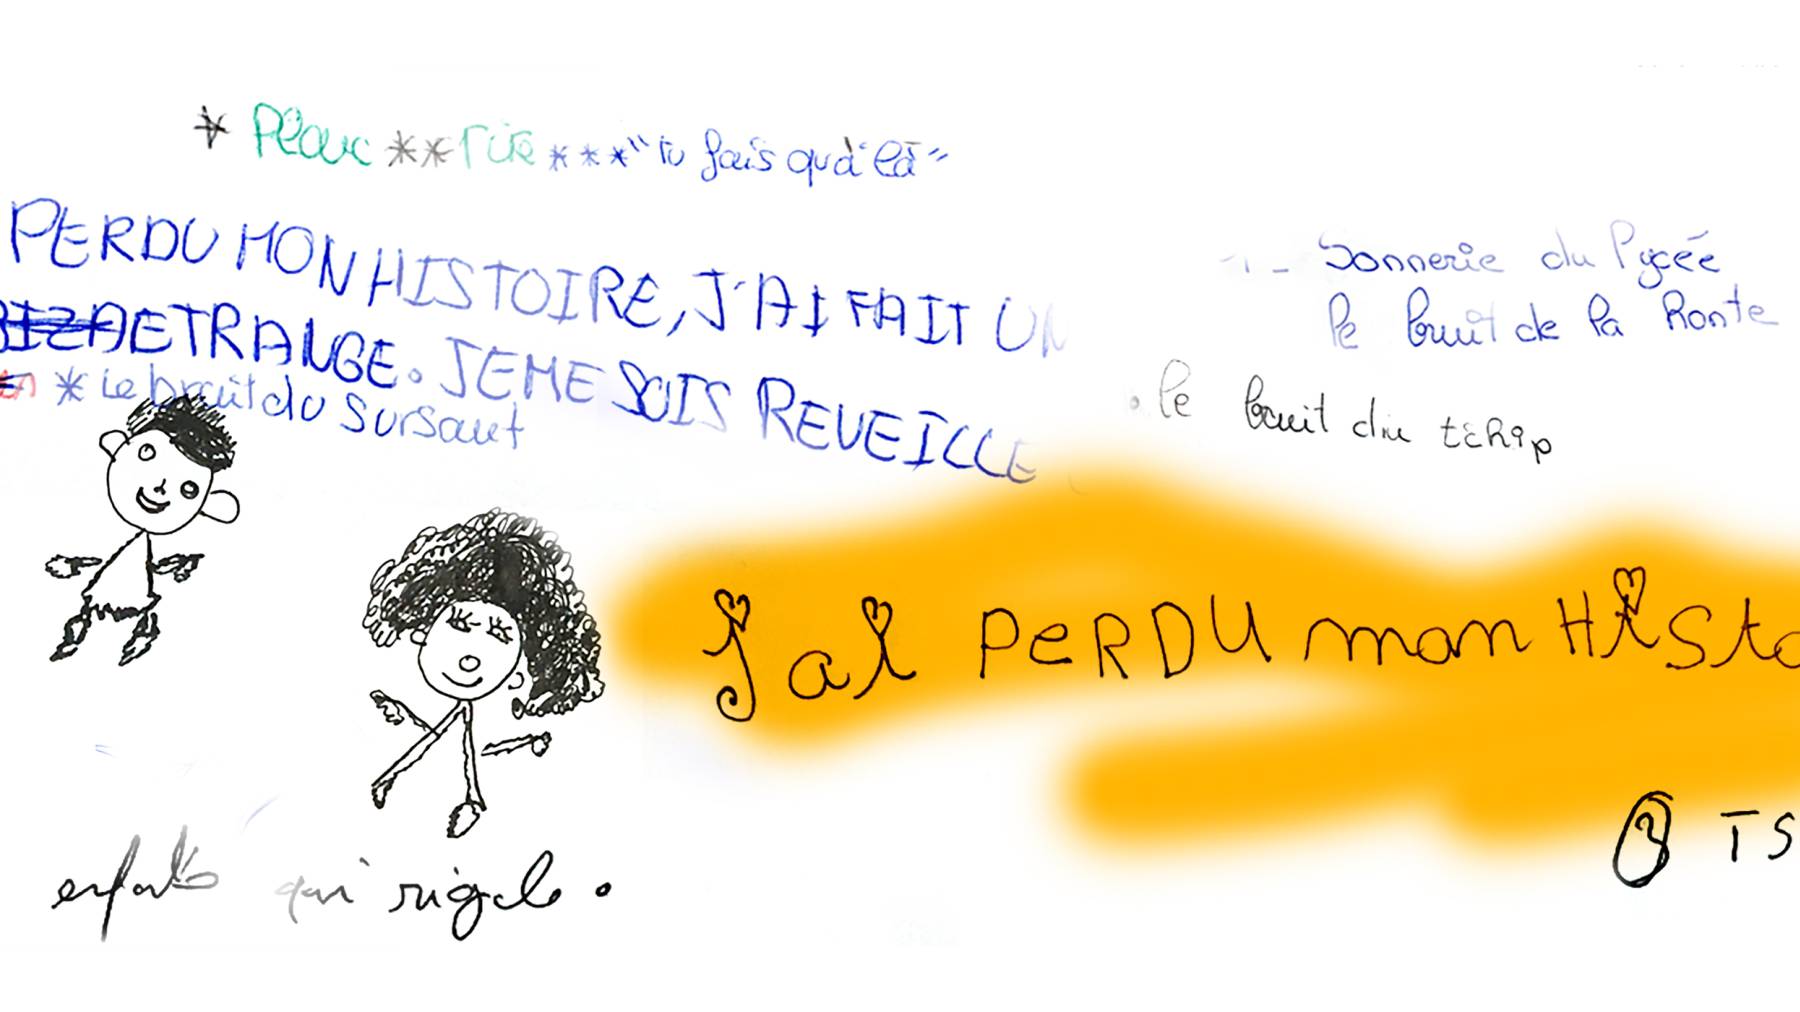 * Pleure ** rire *** "tu fais qu'à là"
PERDU MON HISTOIRE, J'AI FAIT UN
ETRANGE. JE ME SUIS REVEILLE
* Le bruit du sursaut
1 - Sonnerie du lycée
le bruit de la Honte
. le bruit du tchip
j'ai PeRDU mon Histo
enfants qui rigole.
TS